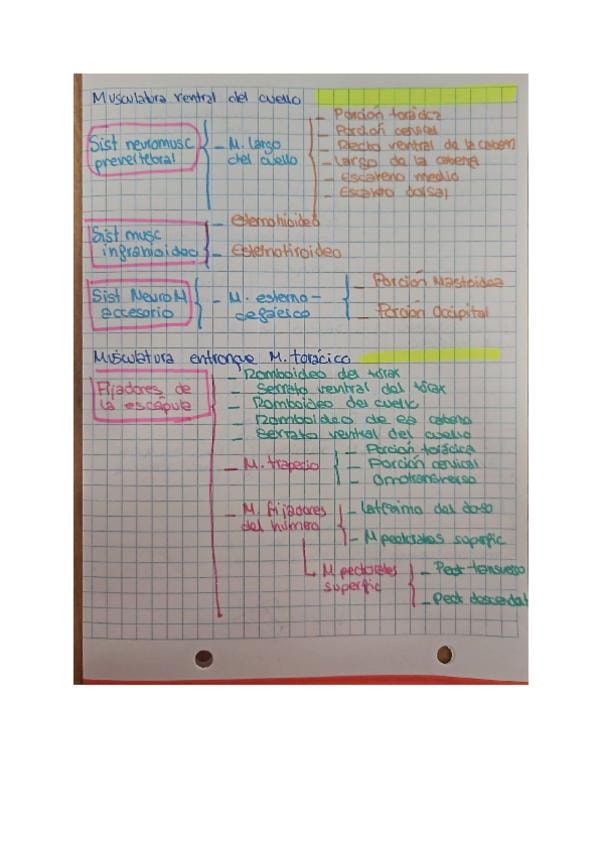 Musculatura ventral del cuello
Sist neuromusc
prevertebral
M. largo
del cuello
Porción torácica
Porción cervical
Recto ventral de la cabeza
Largo de la cabeza
Escaleno medio
Escaleno dorsal
Sist musc
infrahioideo
Esternohioideo
Esternotiroideo
Sist NeuroM
accesorio
M. esterno-
cefálico
Porción Mastoidea
Porción Occipital
Musculatura entronque M. torácico
Fijadores de
la escápula
Romboideo del tórax
Serrato ventral del tórax
Romboideo del cuello
Romboideo de la cabeza
Serrato ventral del cuello
M. trapecio
Porción torácica
Porción cervical
Omotransverso
M. fijadores
del húmero
del doso
M pectorales superfic
M pectorales
superfic
Pect
Pect